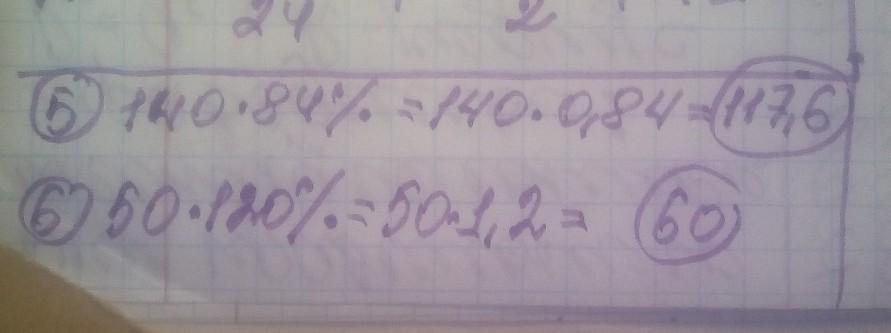 24 2
5) 140·84% = 140·0,84 = 117,6
6) 50·120% = 50·1,2 = 60